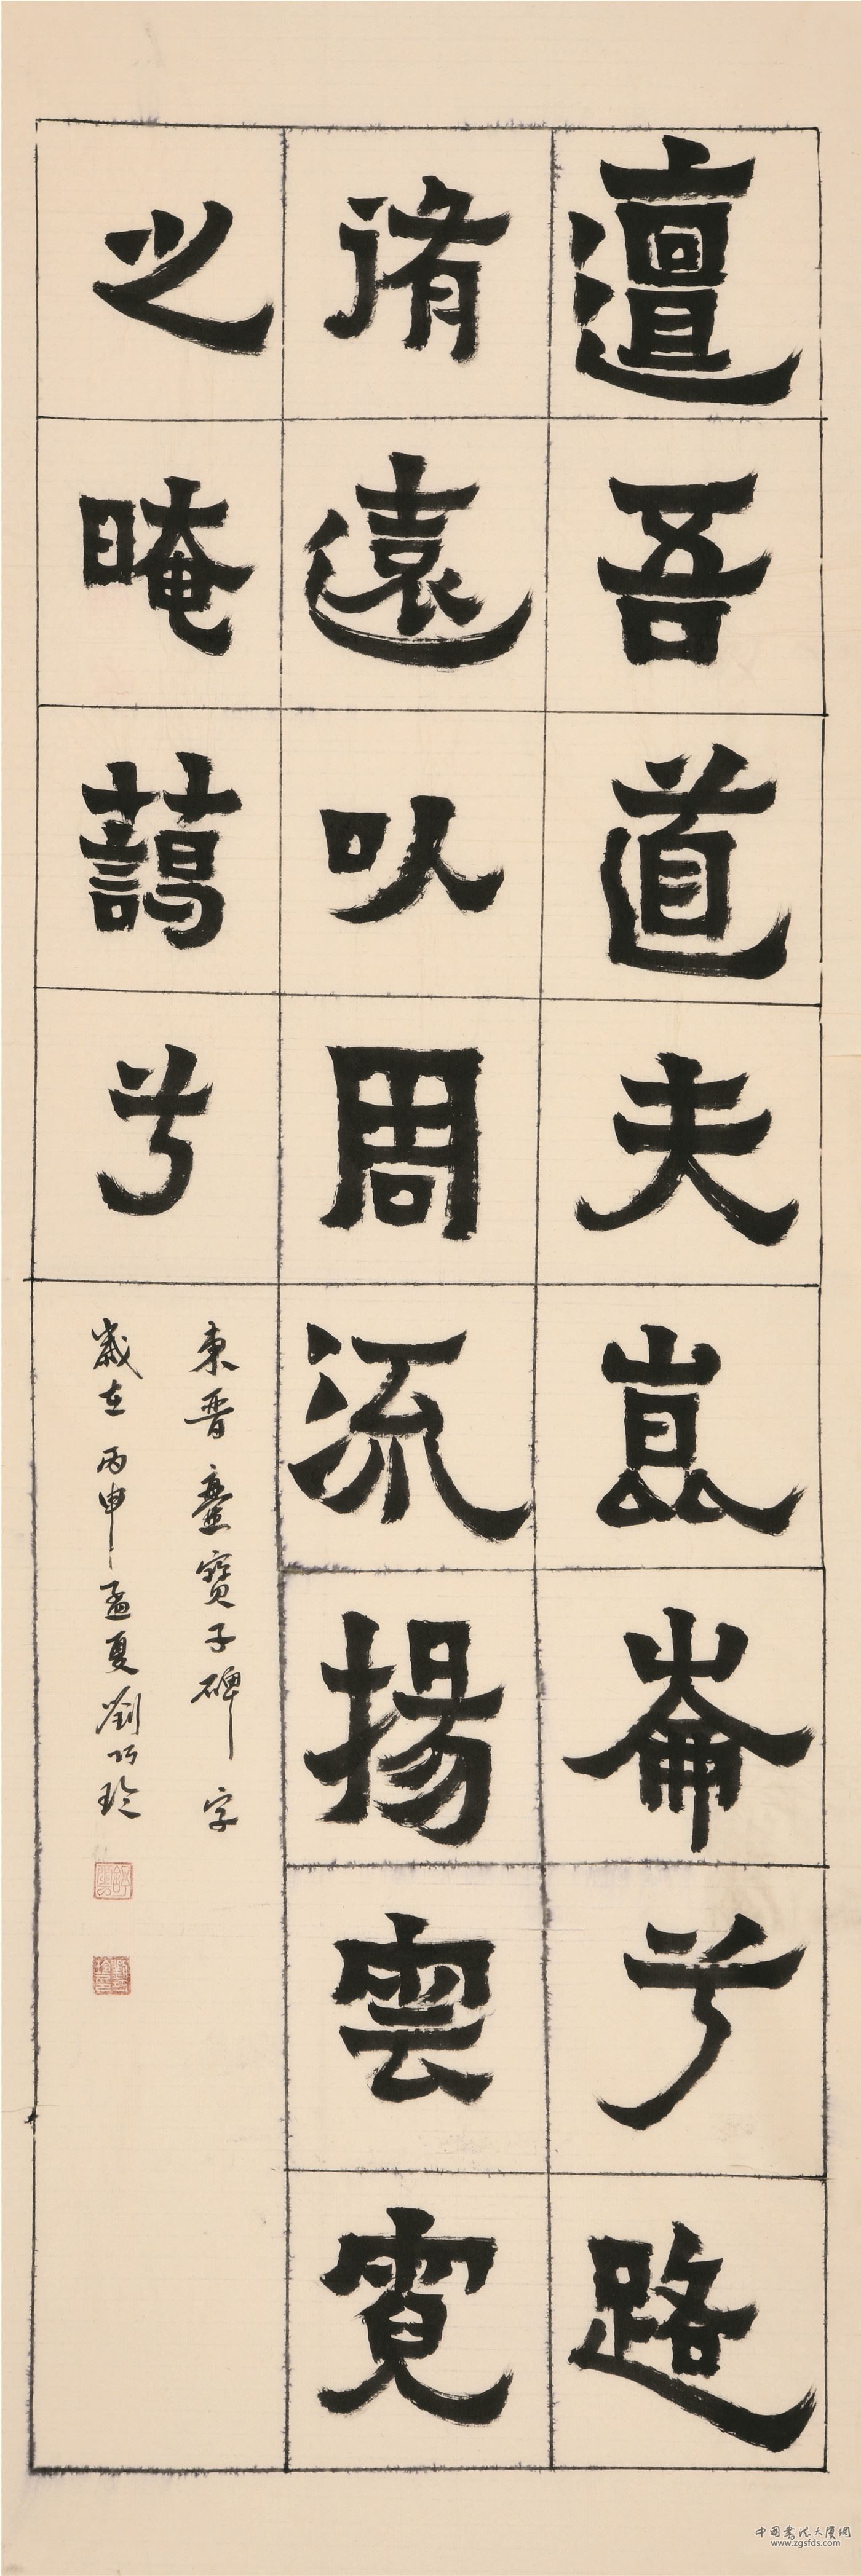 邅吾道夫崑崙兮路
脩遠以周流揚雲霓
之晻藹兮
東晉爨寶子碑字
歲在丙申孟夏劉巧玲
中国书法大厦網
www.zgsfds.com